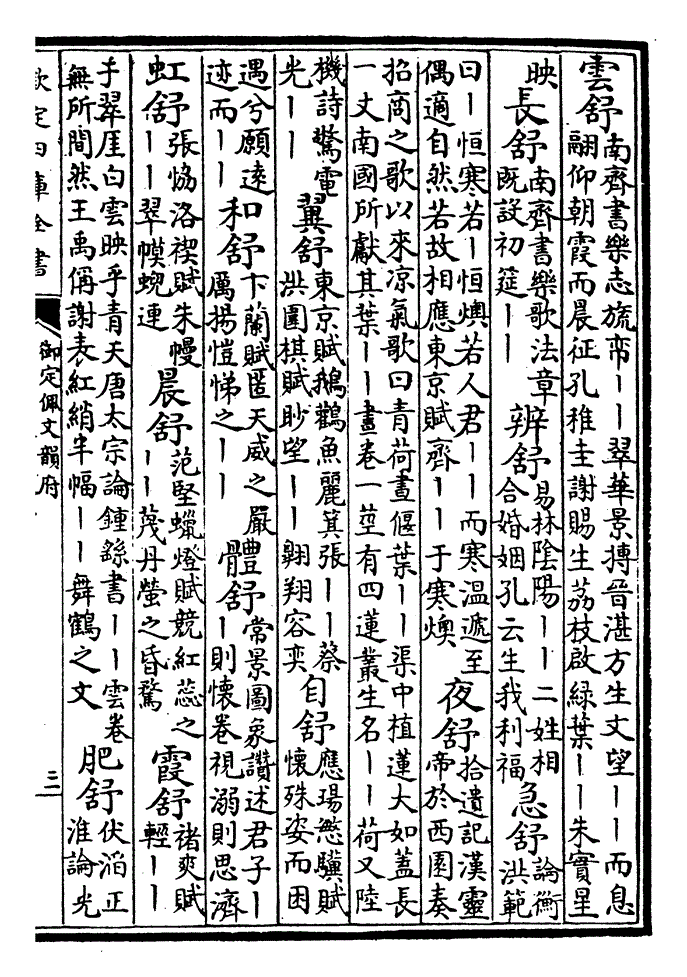 雲舒南齊書樂志旒帟丨丨翠華景搏晉湛方生文望丨丨而息
翮仰朝霞而晨征孔稚圭謝賜生荔枝啟緑葉丨丨朱實星
映長舒南齊書樂歌法章
既設初筵丨丨
辨舒易林陰陽丨丨二姓相
合婚姻孔云生我利福
急舒論衡
洪範
曰丨恒寒若丨恒燠若人君丨丨而寒温遞至
偶適自然若故相應東京賦齊丨丨于寒燠
夜舒拾遺記漢靈
帝於西園奏
招商之歌以來凉氣歌曰青荷晝偃葉丨丨渠中植蓮大如蓋長
一丈南國所獻其葉丨丨晝卷一莖有四蓮叢生名丨丨荷又陸
機詩驚電
光丨丨
翼舒東京賦鵝鸛魚麗箕張丨丨蔡
洪圍棋賦眇望丨丨翱翔容奕
自舒應瑒慜驥賦
懷殊姿而困
遇兮願遠
迹而丨丨
和舒卞蘭賦匿天威之嚴
厲揚愷悌之丨丨
體舒常景圖象讚述君子丨
丨則懷卷視溺則思濟
虹舒張協洛禊賦朱幔
丨丨翠幙蜺連
晨舒范堅蠟燈賦競紅蕊之
丨丨茂丹螢之昏騖
霞舒褚爽賦
輕丨丨
于翠厓白雲映乎青天唐太宗論鍾繇書丨丨雲卷
無所間然王禹偁謝表紅綃半幅丨丨舞鶴之文
肥舒伏滔正
淮論光
欽定四庫全書
御定佩文韻府